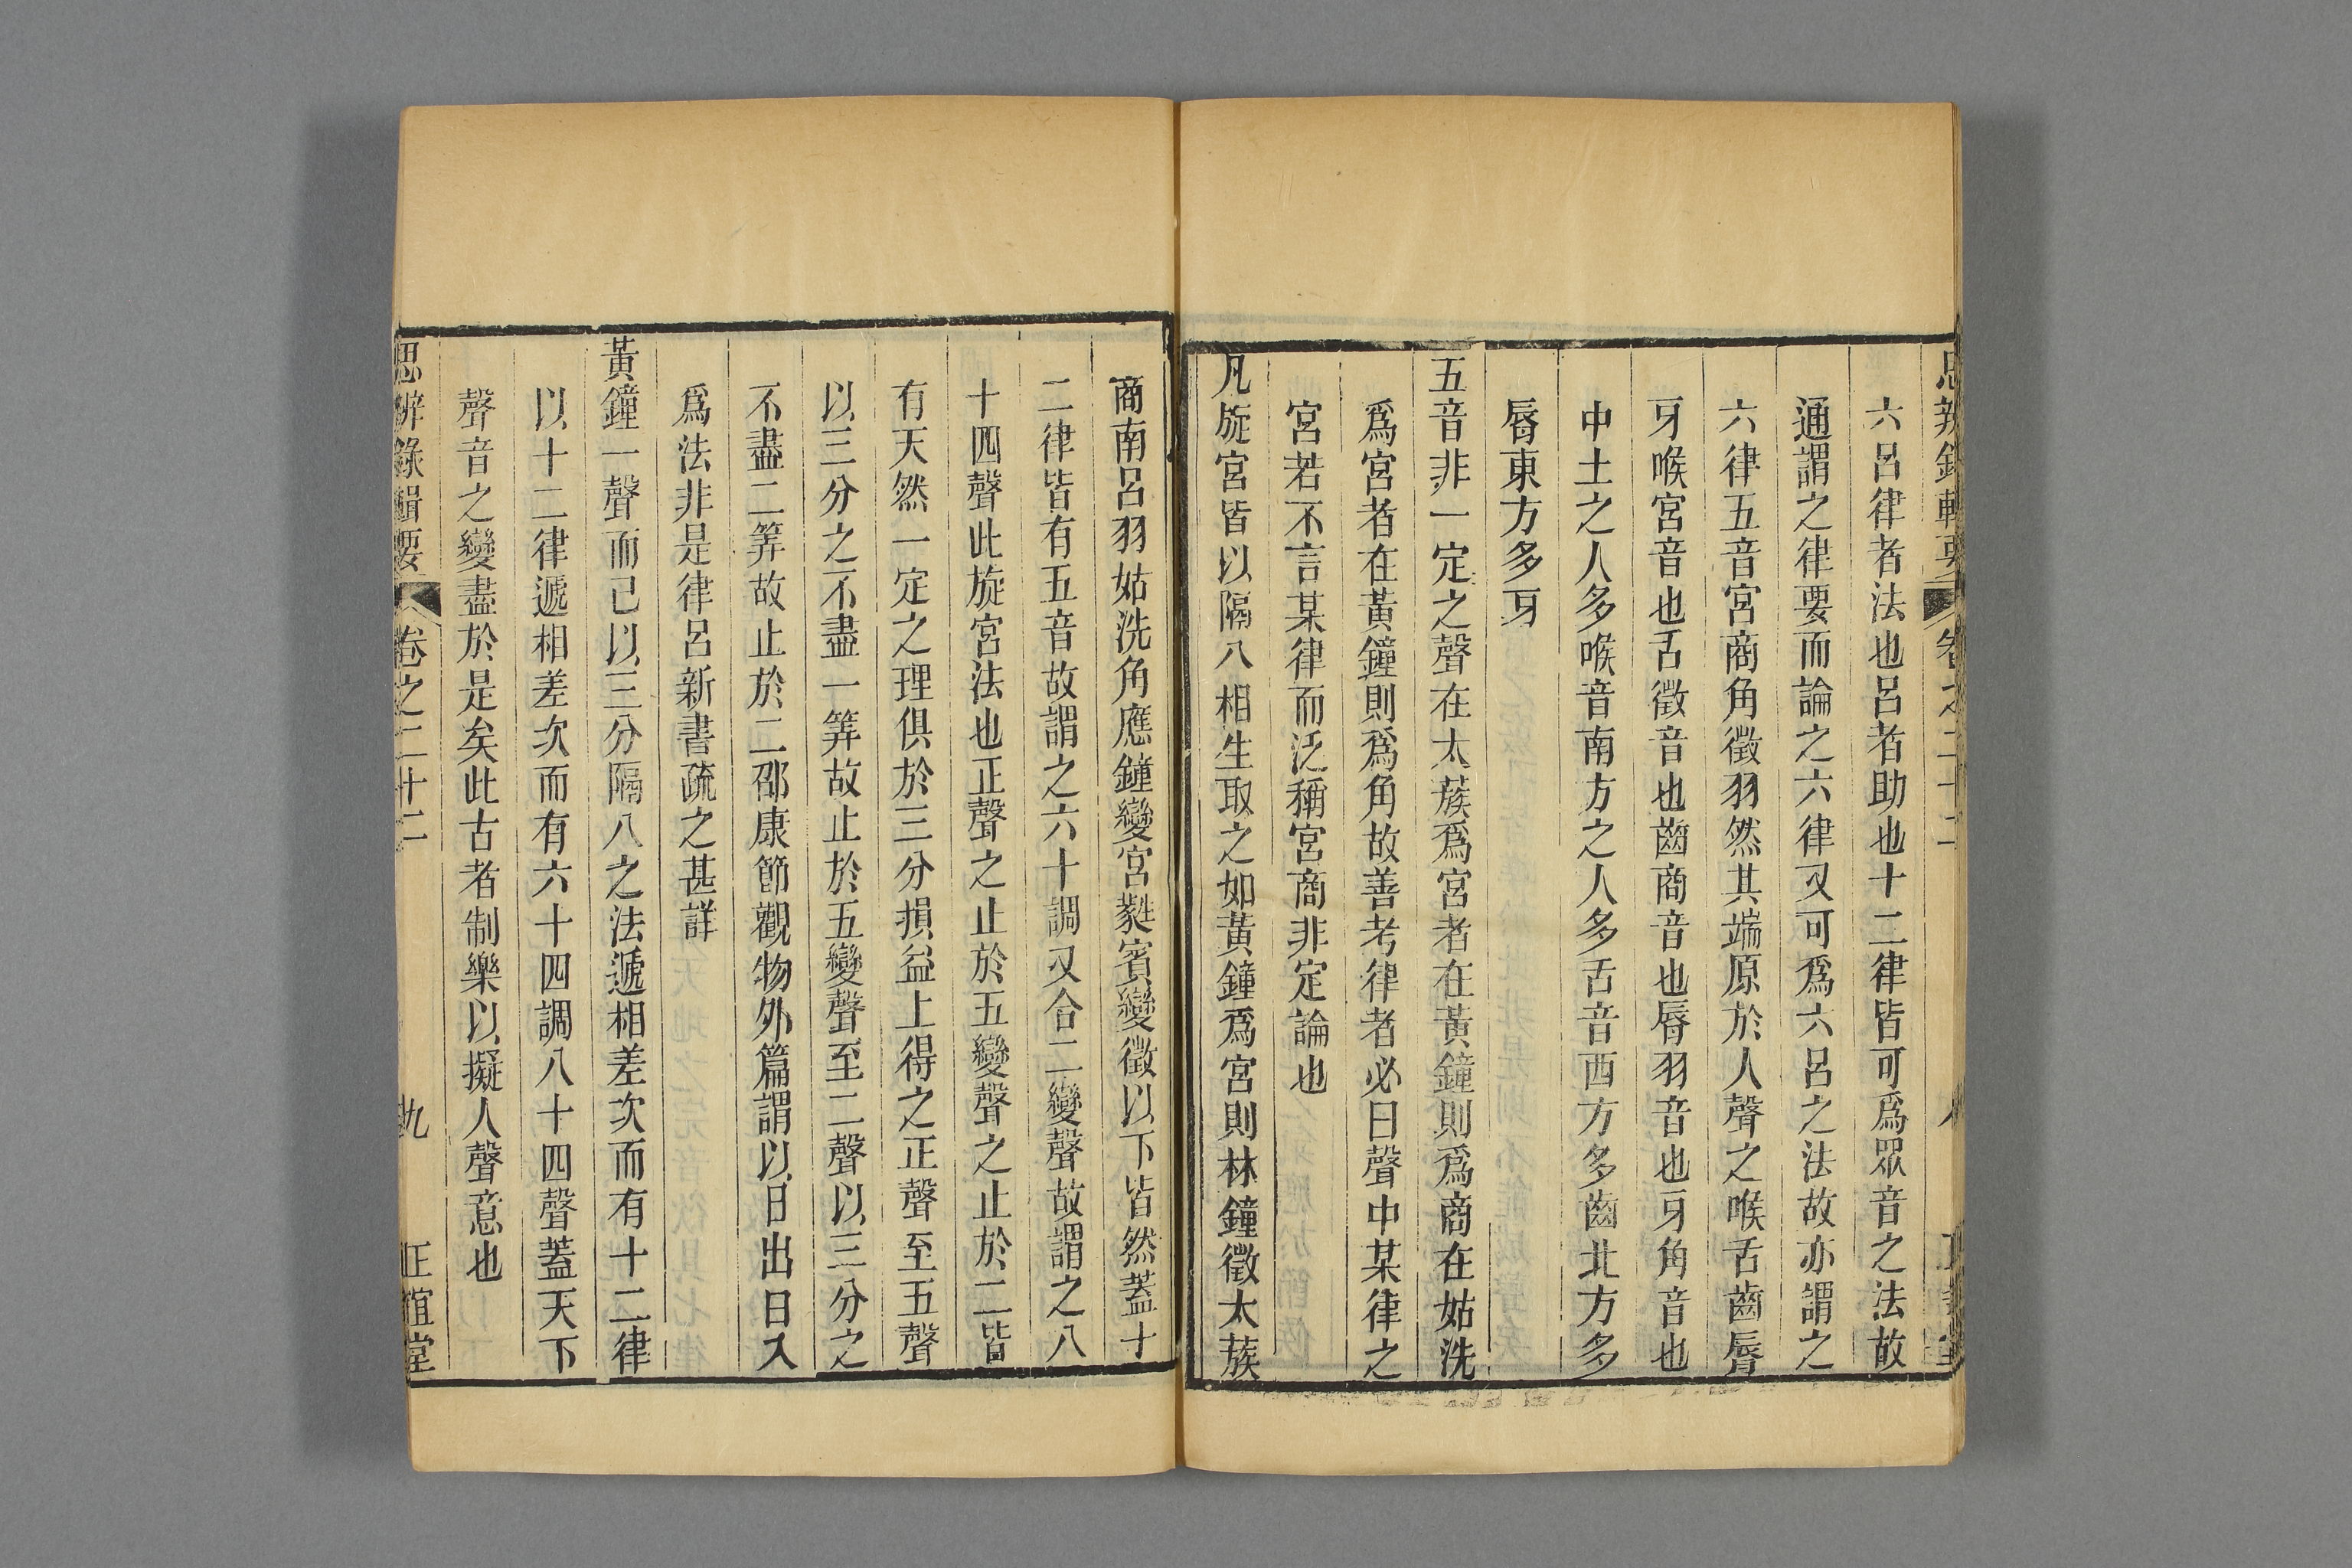 思辨錄輯要 卷之二十二 八 正誼堂
六呂律者法也呂者助也十二律皆可爲眾音之法故
通謂之律要而論之六律又可爲六呂之法故亦謂之
六律五音宮商角徵羽然其端原於人聲之喉舌齒脣
牙喉宮音也舌徵音也齒商音也脣羽音也牙角音也
中土之人多喉音南方之人多舌音西方多齒北方多
脣東方多牙
五音非一定之聲在太蔟爲宮者在黃鐘則爲商在姑洗
爲宮者在黃鐘則爲角故善考律者必曰聲中某律之
宮若不言某律而泛稱宮商非定論也
凡旋宮皆以隔八相生取之如黃鐘爲宮則林鐘徵太蔟
商南呂羽姑洗角應鐘變宮蕤賓變徵以下皆然蓋十
二律皆有五音故謂之六十調又合二變聲故謂之八
十四聲此旋宮法也正聲之止於五變聲之止於二皆
有天然一定之理俱於三分損益上得之正聲至五聲
以三分之不盡一筭故止於五變聲至二聲以三分之
不盡二筭故止於二邵康節觀物外篇謂以日出日入
爲法非是律呂新書疏之甚詳
黃鐘一聲而已以三分隔八之法遞相差次而有十二律
以十二律遞相差次而有六十四調八十四聲蓋天下
聲音之變盡於是矣此古者制樂以擬人聲意也
思辨錄輯要 卷之二十二 九 正誼堂